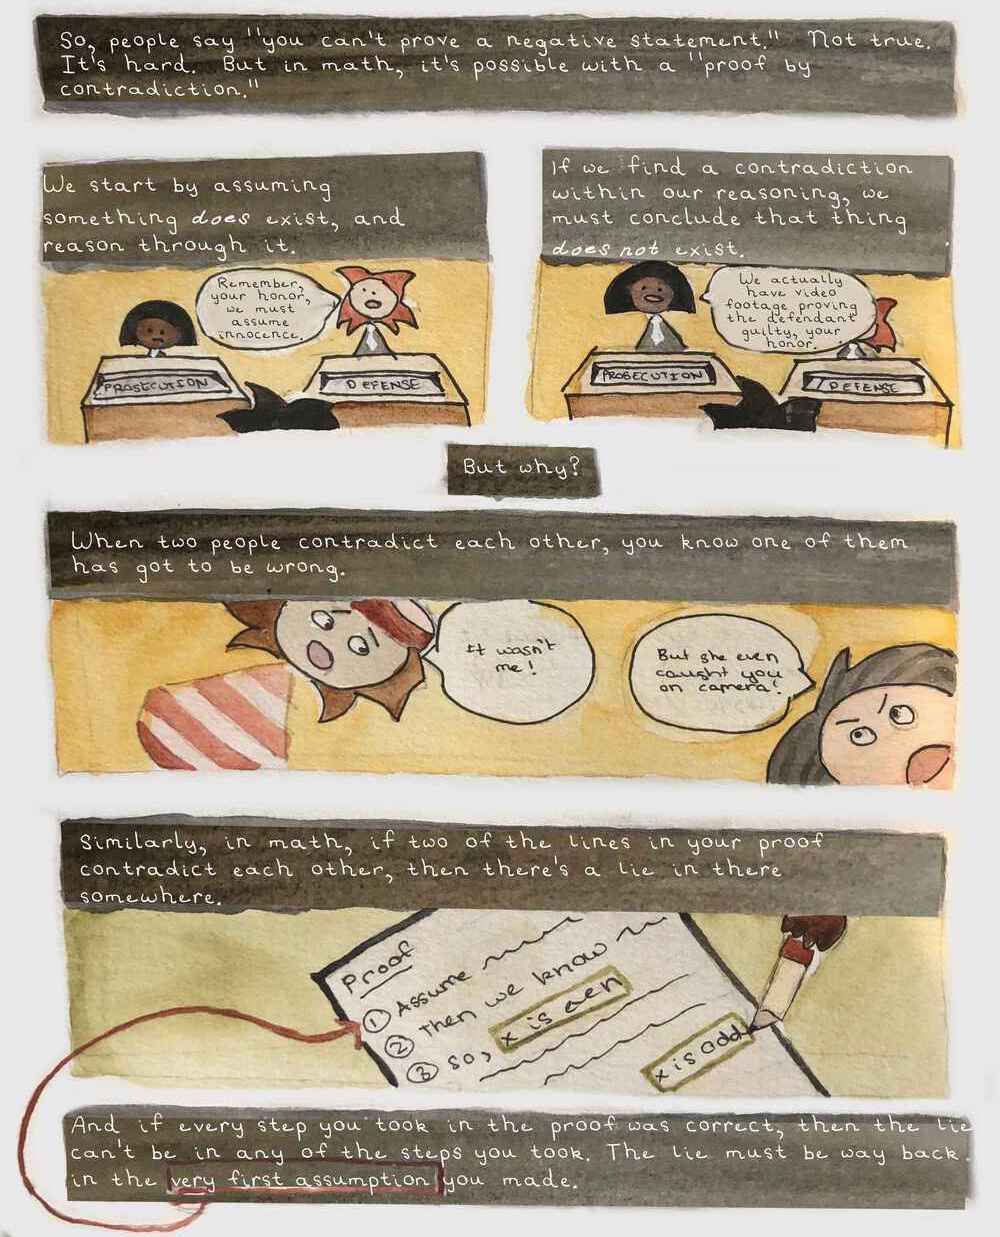 So, people say "you can't prove a negative statement." Not true.
It's hard. But in math, it's possible with a "proof by
contradiction."
We start by assuming
something does exist, and
reason through it.
Remember,
your honor,
we must
assume
innocence.
PROSECUTION
DEFENSE
If we find a contradiction
within our reasoning, we
must conclude that thing
does not exist.
We actually
have video
footage proving
the defendant
guilty, your
honor.
PROSECUTION
DEFENSE
But why?
When two people contradict each other, you know one of them
has got to be wrong.
It wasn't
me!
But she even
caught you
on camera!
Similarly, in math, if two of the lines in your proof
contradict each other, then there's a lie in there
somewhere.
Proof
1 Assume
2 Then we know
3 So, x is even
x is odd
And if every step you took in the proof was correct, then the lie
can't be in any of the steps you took. The lie must be way back
in the very first assumption you made.